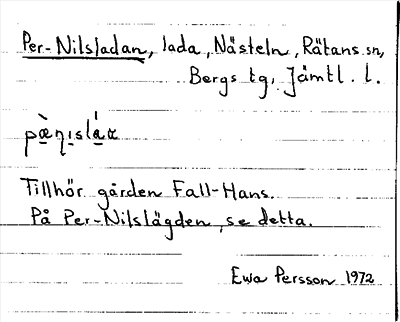 Per-Nilsladan, lada, Nästeln, Rätans sn,
Bergs tg, Jämtl. l.
Tillhör gården Fall-Hans.
På Per-Nilslägden, se detta.
Ewa Persson 1972